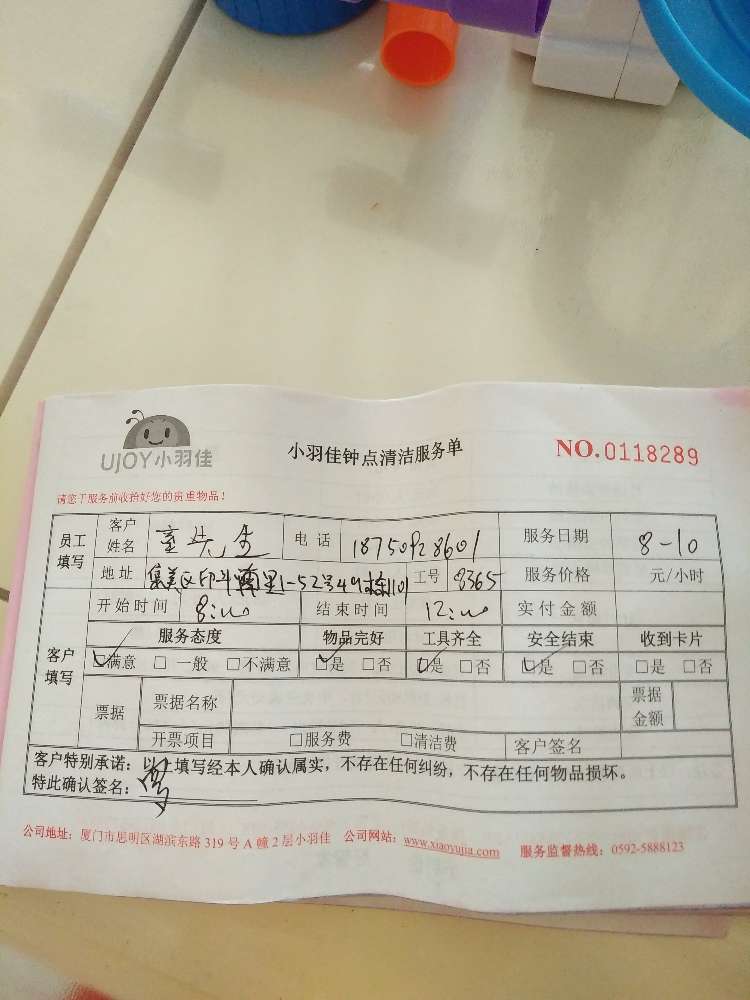 UJOY小羽佳
小羽佳钟点清洁服务单
NO.0118289
请您于服务前收拾好您的贵重物品!
员工填写 客户姓名 童先生 电话 18750928601 服务日期 8-10
地址 集美区 里1-52号49栋1101 工号 8365 服务价格 元/小时
客户填写 开始时间 8:00 结束时间 12:00 实付金额
服务态度 物品完好 工具齐全 安全结束 收到卡片
☑满意 □一般 □不满意 ☑是 □否 ☑是 □否 ☑是 □否 □是 □否
票据 票据名称 票据金额
开票项目 □服务费 □清洁费 客户签名
客户特别承诺:以上填写经本人确认属实,不存在任何纠纷,不存在任何物品损坏。
特此确认签名:
公司地址:厦门市思明区湖滨东路319号A幢2层小羽佳 公司网站:www.xiaoyujia.com 服务监督热线:0592-5888123